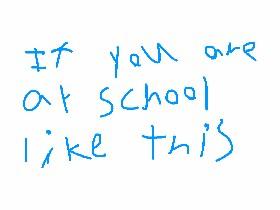 If you are
at school
like this